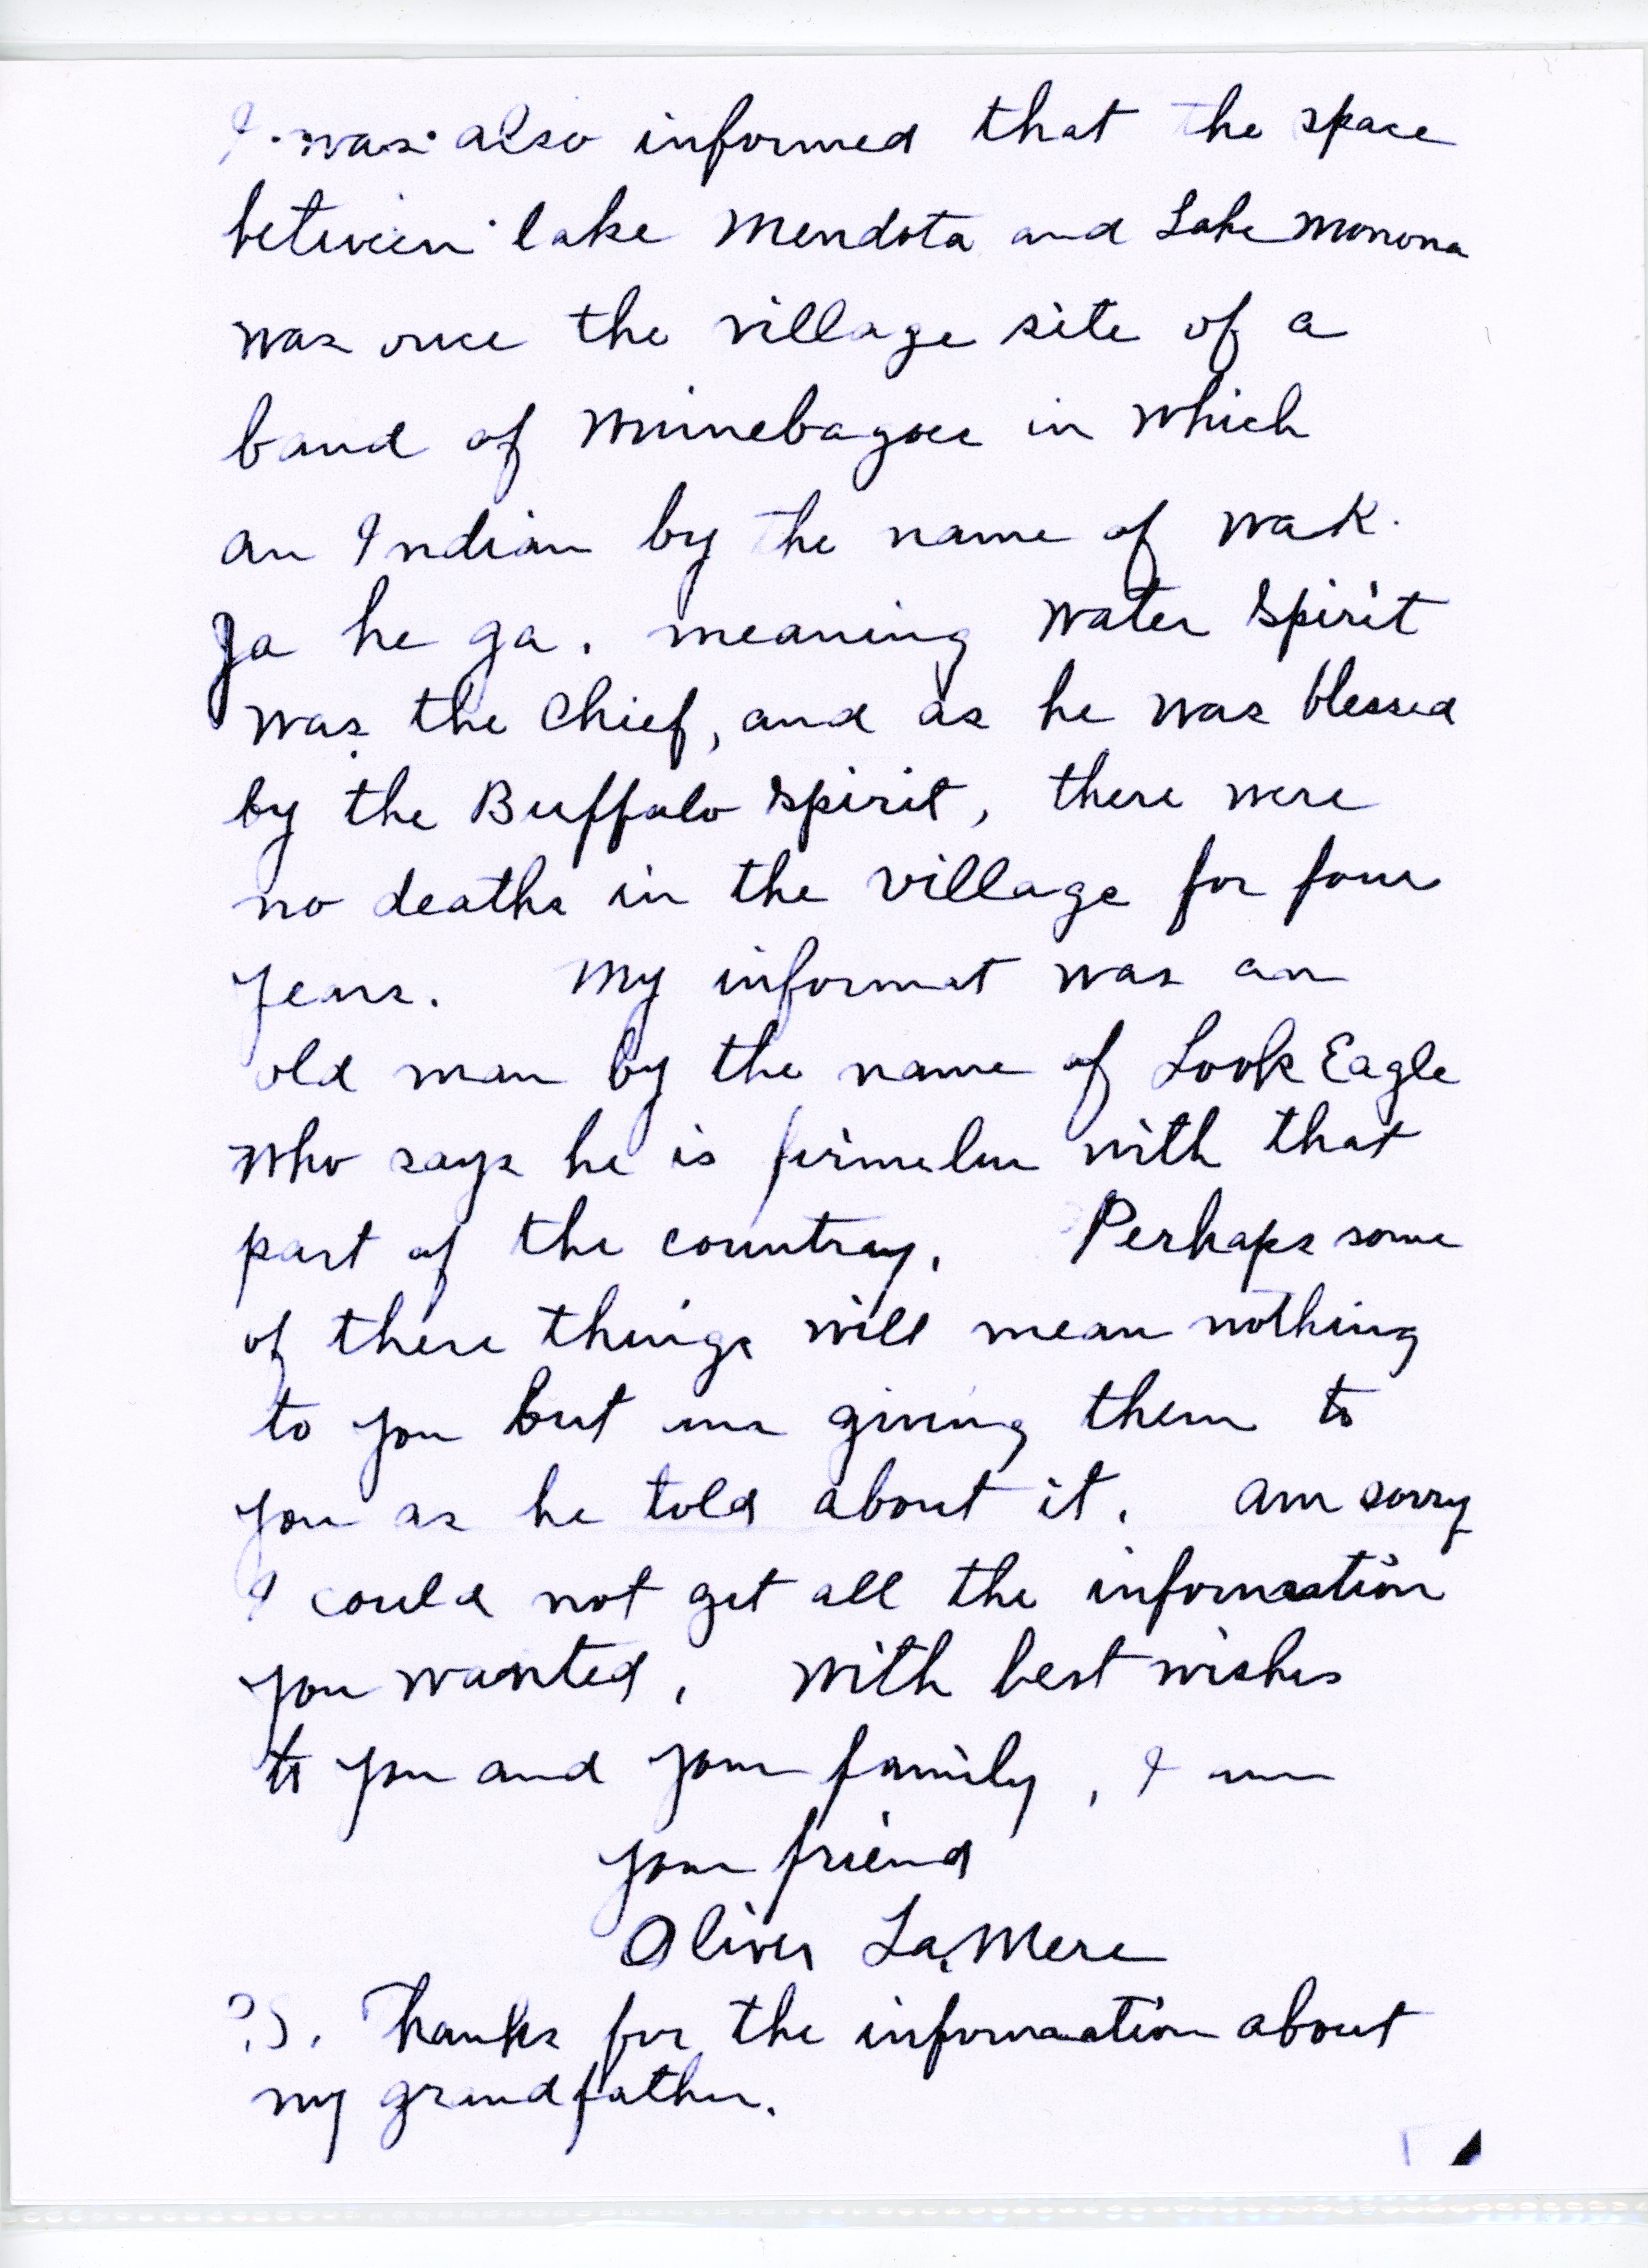 I was also informed that the space
between lake Mendota and Lake Monona
was once the village site of a
band of Winnebagoes in which
an Indian by the name of Wak.
Ja he ga. meaning Water Spirit
was the Chief, and as he was blessed
by the Buffalo Spirit, there were
no deaths in the village for four
years. My informat was an
old man by the name of Look Eagle
who says he is with that
part of the country. Perhaps some
of these things will mean nothing
to you but am giving them to
you as he told about it. Am sorry
I could not get all the information
you wanted. With best wishes
to you and your family, I am
your friend
Oliver LaMere
P.S. Thanks for the information about
my grandfather.